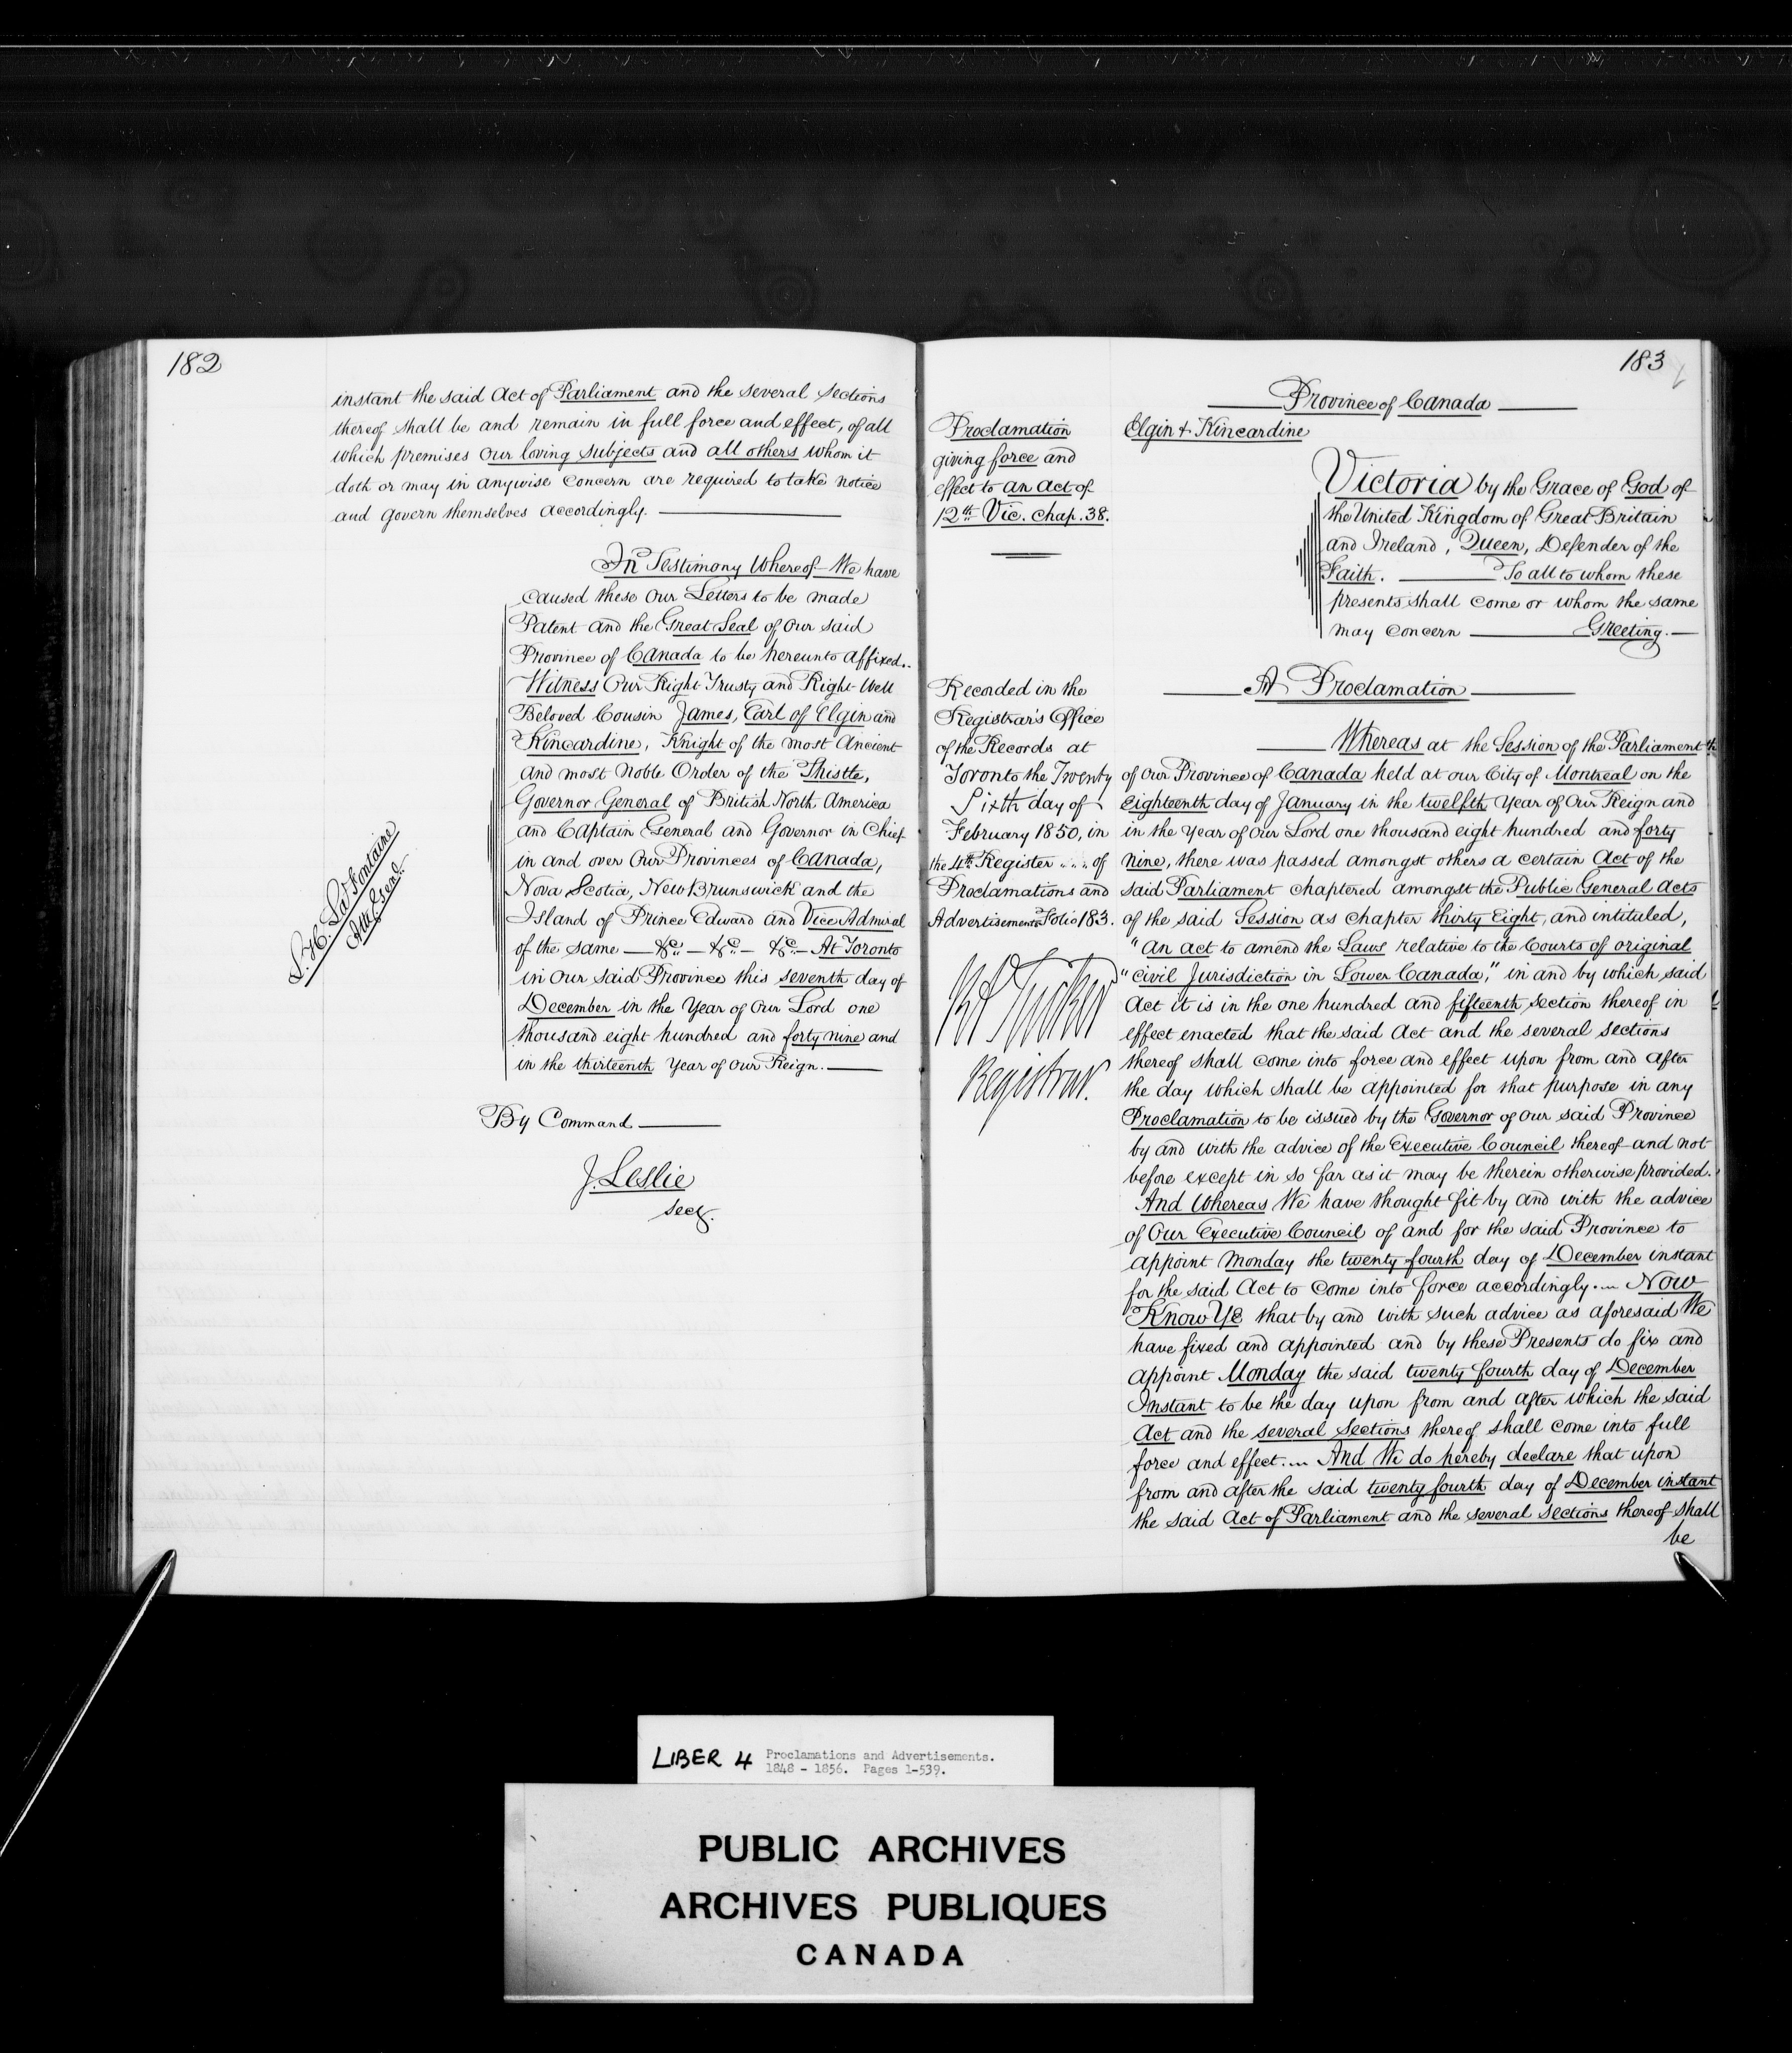 182
instant the said Act of Parliament and the several sections
thereof shall be and remain in full force and effect, of all
which premises our loving subjects and all others whom it
doth or may in anywise concern are required to take notice
and govern themselves accordingly.
In Testimony Whereof We have
caused these Our Letters to be made
Patent and the Great Seal of our said
Province of Canada to be hereunto affixed.
Witness Our Right Trusty and Right Well
Beloved Cousin James, Earl of Elgin and
Kincardine, Knight of the most Ancient
and most Noble Order of the Thistle,
Governor General of British North America
and Captain General and Governor in Chief
in and over Our Provinces of Canada,
Nova Scotia, New Brunswick and the
Island of Prince Edward and Vice Admiral
of the same — &c. — &c. — &c. — At Toronto
in Our said Province this seventh day of
December in the Year of Our Lord one
thousand eight hundred and forty nine and
in the thirteenth Year of Our Reign.
L. H. LaFontaine
Atty Genl.
By Command
J. Leslie
Secy.
183
Proclamation
giving force and
effect to an Act of
12th Vic. Chap. 38.
Recorded in the
Registrar's Office
of the Records at
Toronto the Twenty
Sixth day of
February 1850, in
the 4th Register of
Proclamations and
Advertisements Folio 183.
Tucker
Registrar.
Province of Canada
Elgin & Kincardine
Victoria by the Grace of God of
the United Kingdom of Great Britain
and Ireland, Queen, Defender of the
Faith. To all to whom these
presents shall come or whom the same
may concern Greeting.
A Proclamation
Whereas at the Session of the Parliament
of Our Province of Canada held at our City of Montreal on the
Eighteenth day of January in the twelfth Year of Our Reign and
in the Year of Our Lord one thousand eight hundred and forty
nine, there was passed amongst others a certain Act of the
said Parliament chaptered amongst the Public General Acts
of the said Session as Chapter thirty Eight, and intituled,
"An act to amend the Laws relative to the Courts of original
"Civil Jurisdiction in Lower Canada," in and by which said
Act it is in the one hundred and fifteenth section thereof in
effect enacted that the said Act and the several sections
thereof shall come into force and effect upon from and after
the day which shall be appointed for that purpose in any
Proclamation to be issued by the Governor of our said Province
by and with the advice of the Executive Council thereof and not
before except in so far as it may be therein otherwise provided.
And Whereas We have thought fit by and with the advice
of Our Executive Council of and for the said Province to
appoint Monday the twenty fourth day of December instant
for the said Act to come into force accordingly. Now
Know Ye that by and with such advice as aforesaid We
have fixed and appointed and by these Presents do fix and
appoint Monday the said twenty fourth day of December
Instant to be the day upon from and after which the said
Act and the several Sections thereof shall come into full
force and effect. And We do hereby declare that upon
from and after the said twenty fourth day of December instant
the said Act of Parliament and the several sections thereof shall
be
LIBER 4 Proclamations and Advertisements.
1848 - 1856. Pages 1-539.
PUBLIC ARCHIVES
ARCHIVES PUBLIQUES
CANADA